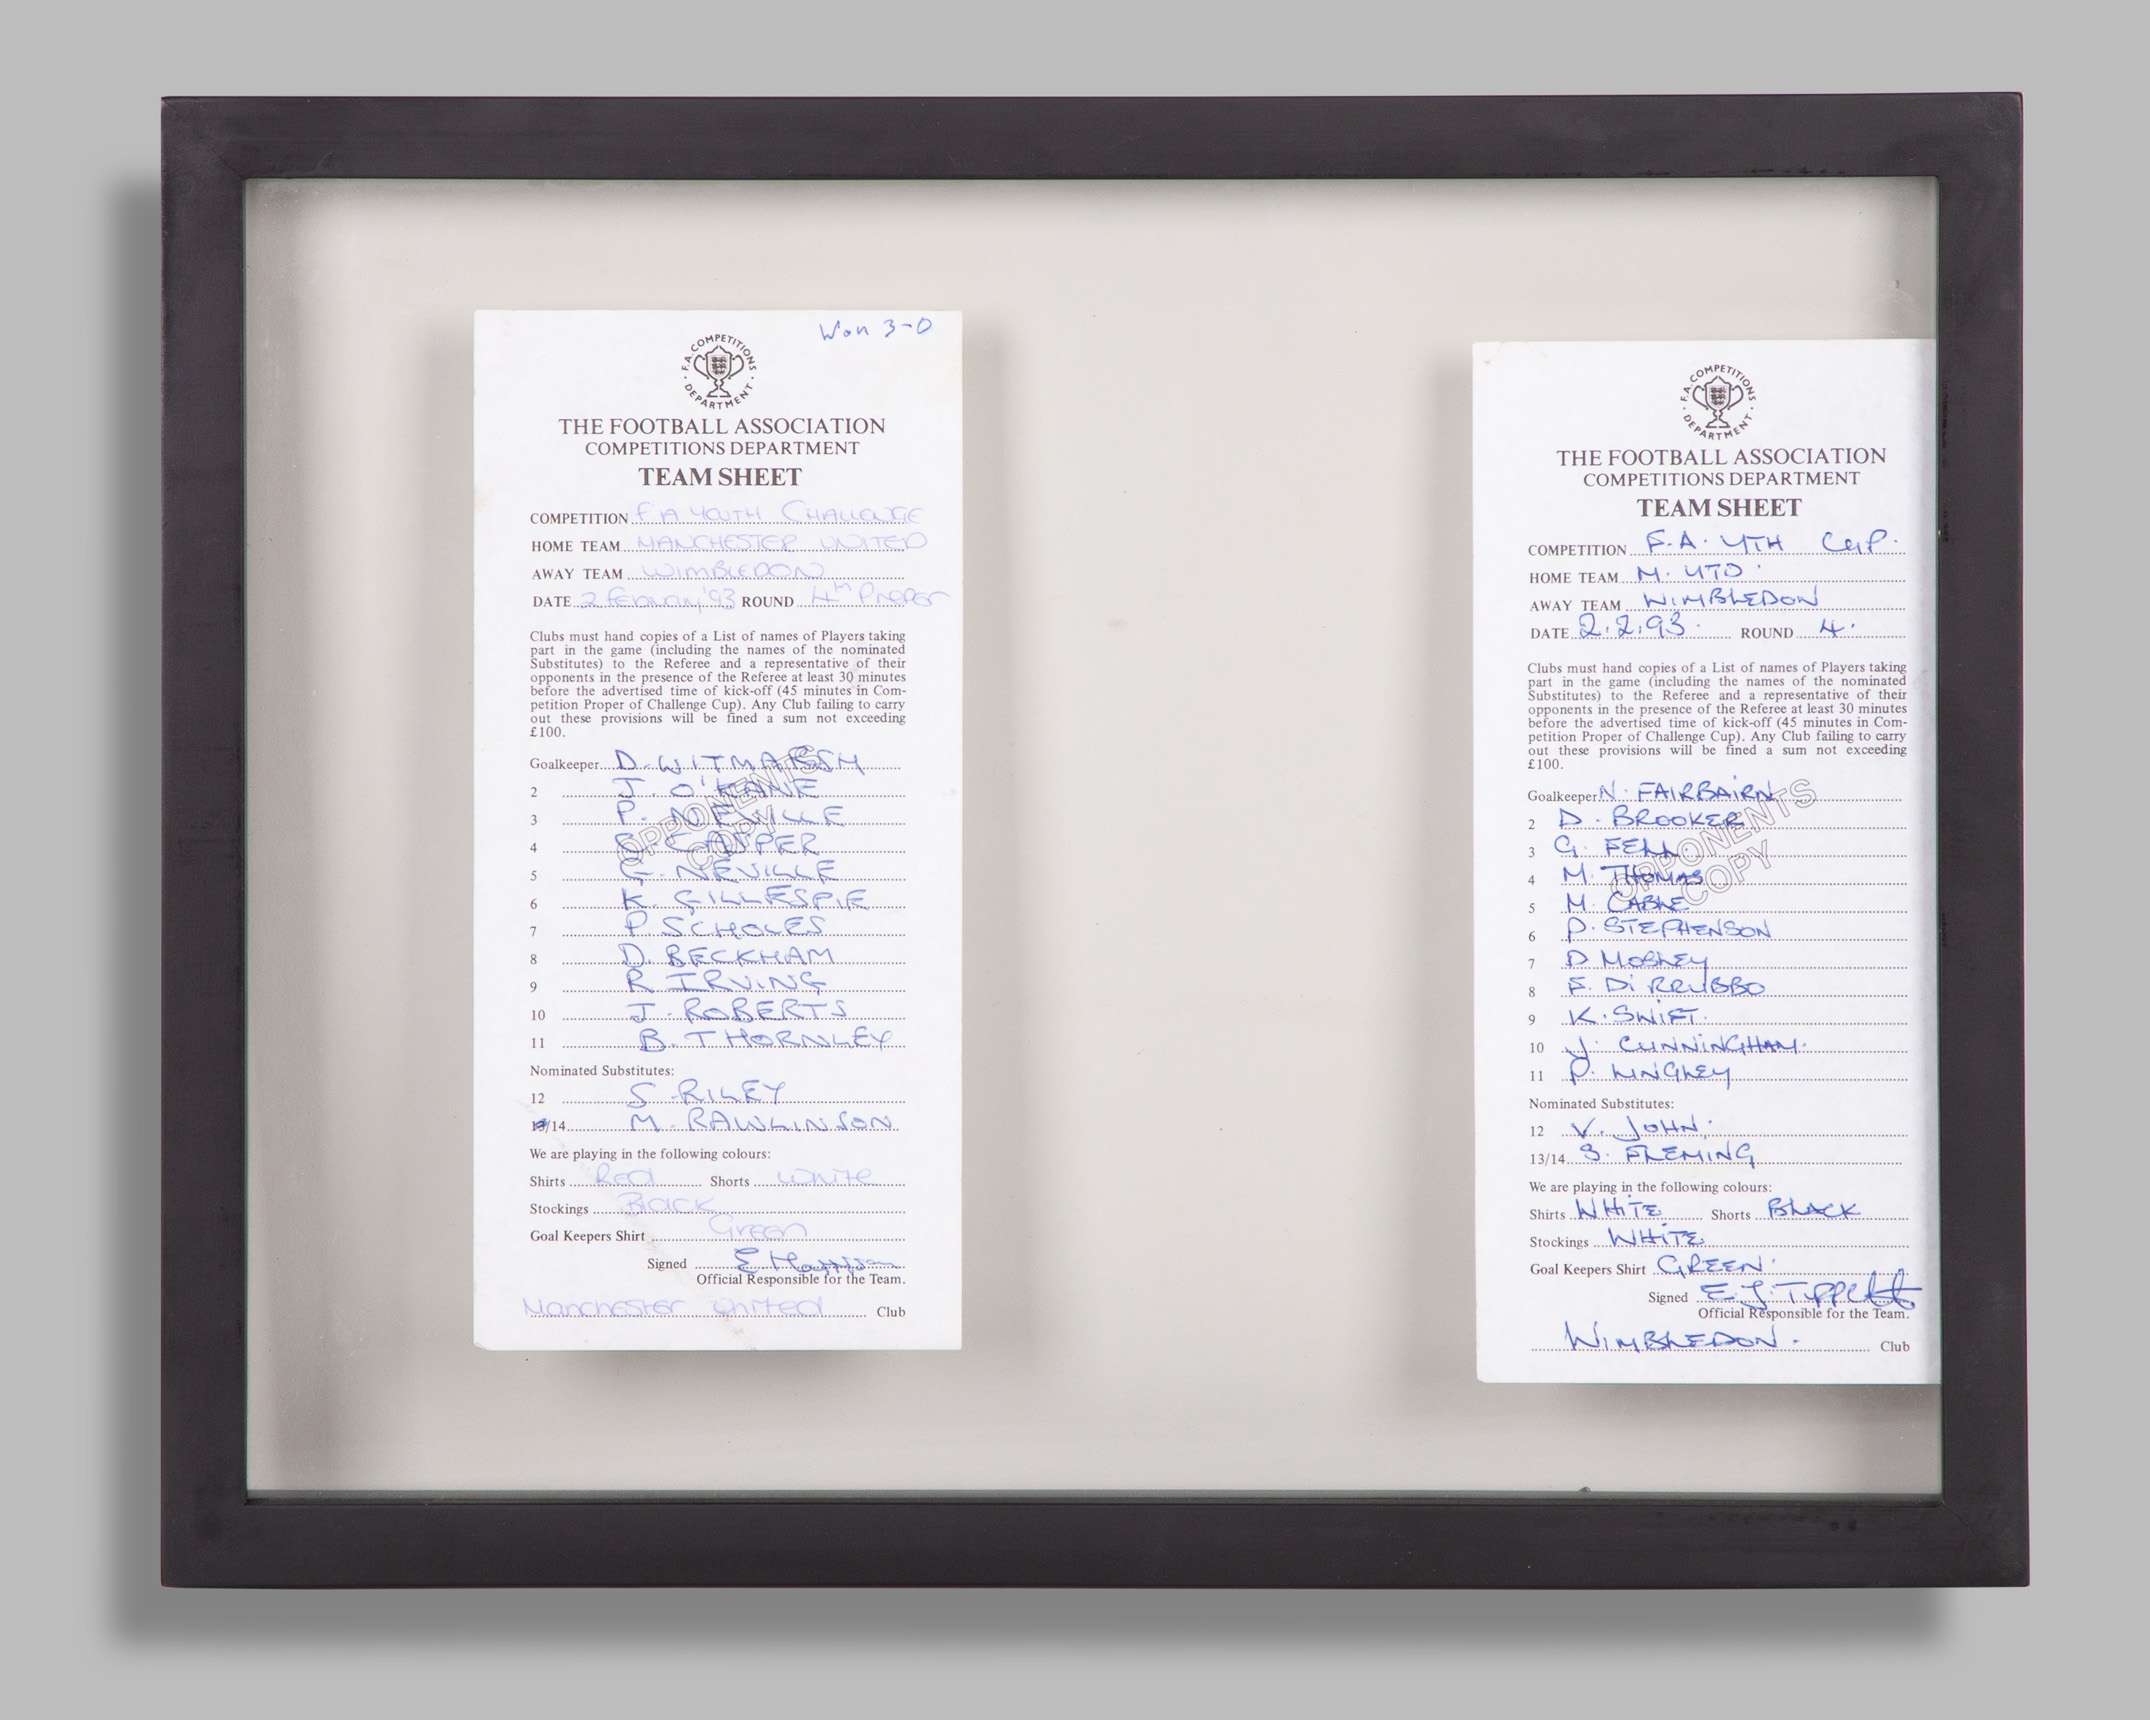 Won 3-0
F.A. COMPETITIONS DEPARTMENT
THE FOOTBALL ASSOCIATION
COMPETITIONS DEPARTMENT
TEAM SHEET
COMPETITION FA YOUTH CHALLENGE
HOME TEAM MANCHESTER UNITED
AWAY TEAM WIMBLEDON
DATE 2 February '93 ROUND 4th Proper
Clubs must hand copies of a List of names of Players taking
part in the game (including the names of the nominated
Substitutes) to the Referee and a representative of their
opponents in the presence of the Referee at least 30 minutes
before the advertised time of kick-off (45 minutes in Com-
petition Proper of Challenge Cup). Any Club failing to carry
out these provisions will be fined a sum not exceeding
£100.
OPPONENTS
COPY
Goalkeeper D. WITMARSH
2 J. O'KANE
3 P. NEVILLE
4 C. CASPER
5 G. NEVILLE
6 K. GILLESPIE
7 P. SCHOLES
8 D. BECKHAM
9 R IRVING
10 J. ROBERTS
11 B. THORNLEY
Nominated Substitutes:
12 S. RILEY
13/14 M. RAWLINSON
We are playing in the following colours:
Shirts Red Shorts White
Stockings Black
Goal Keepers Shirt Green
Signed E Harrison
Official Responsible for the Team.
Manchester United Club
F.A. COMPETITIONS DEPARTMENT
THE FOOTBALL ASSOCIATION
COMPETITIONS DEPARTMENT
TEAM SHEET
COMPETITION F.A. YTH CUP.
HOME TEAM M. UTD.
AWAY TEAM WIMBLEDON
DATE 2.2.93. ROUND 4.
Clubs must hand copies of a List of names of Players taking
part in the game (including the names of the nominated
Substitutes) to the Referee and a representative of their
opponents in the presence of the Referee at least 30 minutes
before the advertised time of kick-off (45 minutes in Com-
petition Proper of Challenge Cup). Any Club failing to carry
out these provisions will be fined a sum not exceeding
£100.
OPPONENTS
COPY
Goalkeeper N. FAIRBAIRN
2 D. BROOKER
3 G. FELL.
4 M. THOMAS
5 M. CABLE
6 P. STEPHENSON
7 D MOBLEY
8 F. Di RRUBBO
9 K. SWIFT.
10 J. CUNNINGHAM.
11 P. LINGLEY
Nominated Substitutes:
12 V. JOHN.
13/14 S. FLEMING
We are playing in the following colours:
Shirts WHITE Shorts BLACK
Stockings WHITE.
Goal Keepers Shirt GREEN.
Signed E. J. TIPPETT
Official Responsible for the Team.
WIMBLEDON. Club